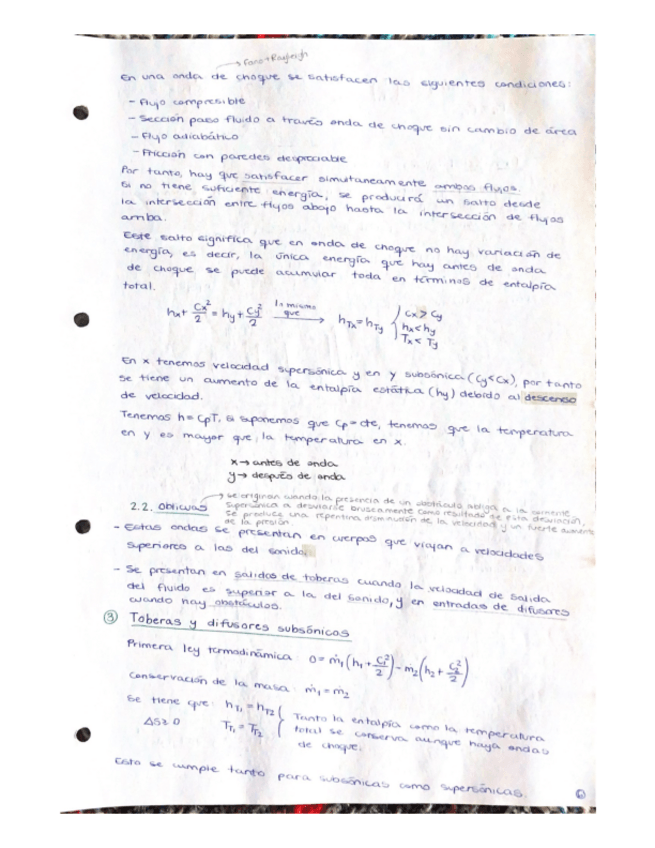 → Fano+Rayleigh
En una onda de choque se satisfacen las siguientes condiciones:
- Flujo compresible
- Sección paso fluido a través onda de choque sin cambio de área
- Flujo adiabático
- Fricción con paredes despreciable
Por tanto, hay que satisfacer simultaneamente ambos flujos.
Si no tiene suficiente energía, se producirá un salto desde
la intersección entre flujos abajo hasta la intersección de flujos
arriba.
Este salto significa que en onda de choque no hay variación de
energía, es decir, la única energía que hay antes de onda
de choque se puede acumular toda en términos de entalpía
total.
hx + Cx²/2 = hy + Cy²/2 lo mismo que → hTx = hTy { Cx > Cy
hx < hy
Tx < Ty
En x tenemos velocidad supersónica y en y subsónica (Cy<Cx), por tanto
se tiene un aumento de la entalpía estática (hy) debido al descenso
de velocidad.
Tenemos h = CpT, si suponemos que Cp = cte, tenemos que la temperatura
en y es mayor que la temperatura en x.
x → antes de onda
y → después de onda
2.2. Oblicuas → se originan cuando la presencia de un obstáculo obliga a la corriente
supersónica a desviarse bruscamente como resultado de esta desviación,
se produce una repentina disminución de la velocidad y un fuerte aumento
de la presión.
- Estas ondas se presentan en cuerpos que viajan a velocidades
superiores a las del sonido.
- Se presentan en salidas de toberas cuando la velocidad de salida
del fluido es superior a la del sonido, y en entradas de difusores
cuando hay obstáculos.
③ Toberas y difusores subsónicos
Primera ley termodinámica: 0 = ṁ₁(h₁ + C₁²/2) - ṁ₂(h₂ + C₂²/2)
Conservación de la masa: ṁ₁ = ṁ₂
Se tiene que: hT₁ = hT₂ { Tanto la entalpía como la temperatura
ΔS≥0 TT₁ = TT₂ total se conserva aunque haya ondas
de choque.
Esto se cumple tanto para subsónicas como supersónicas.